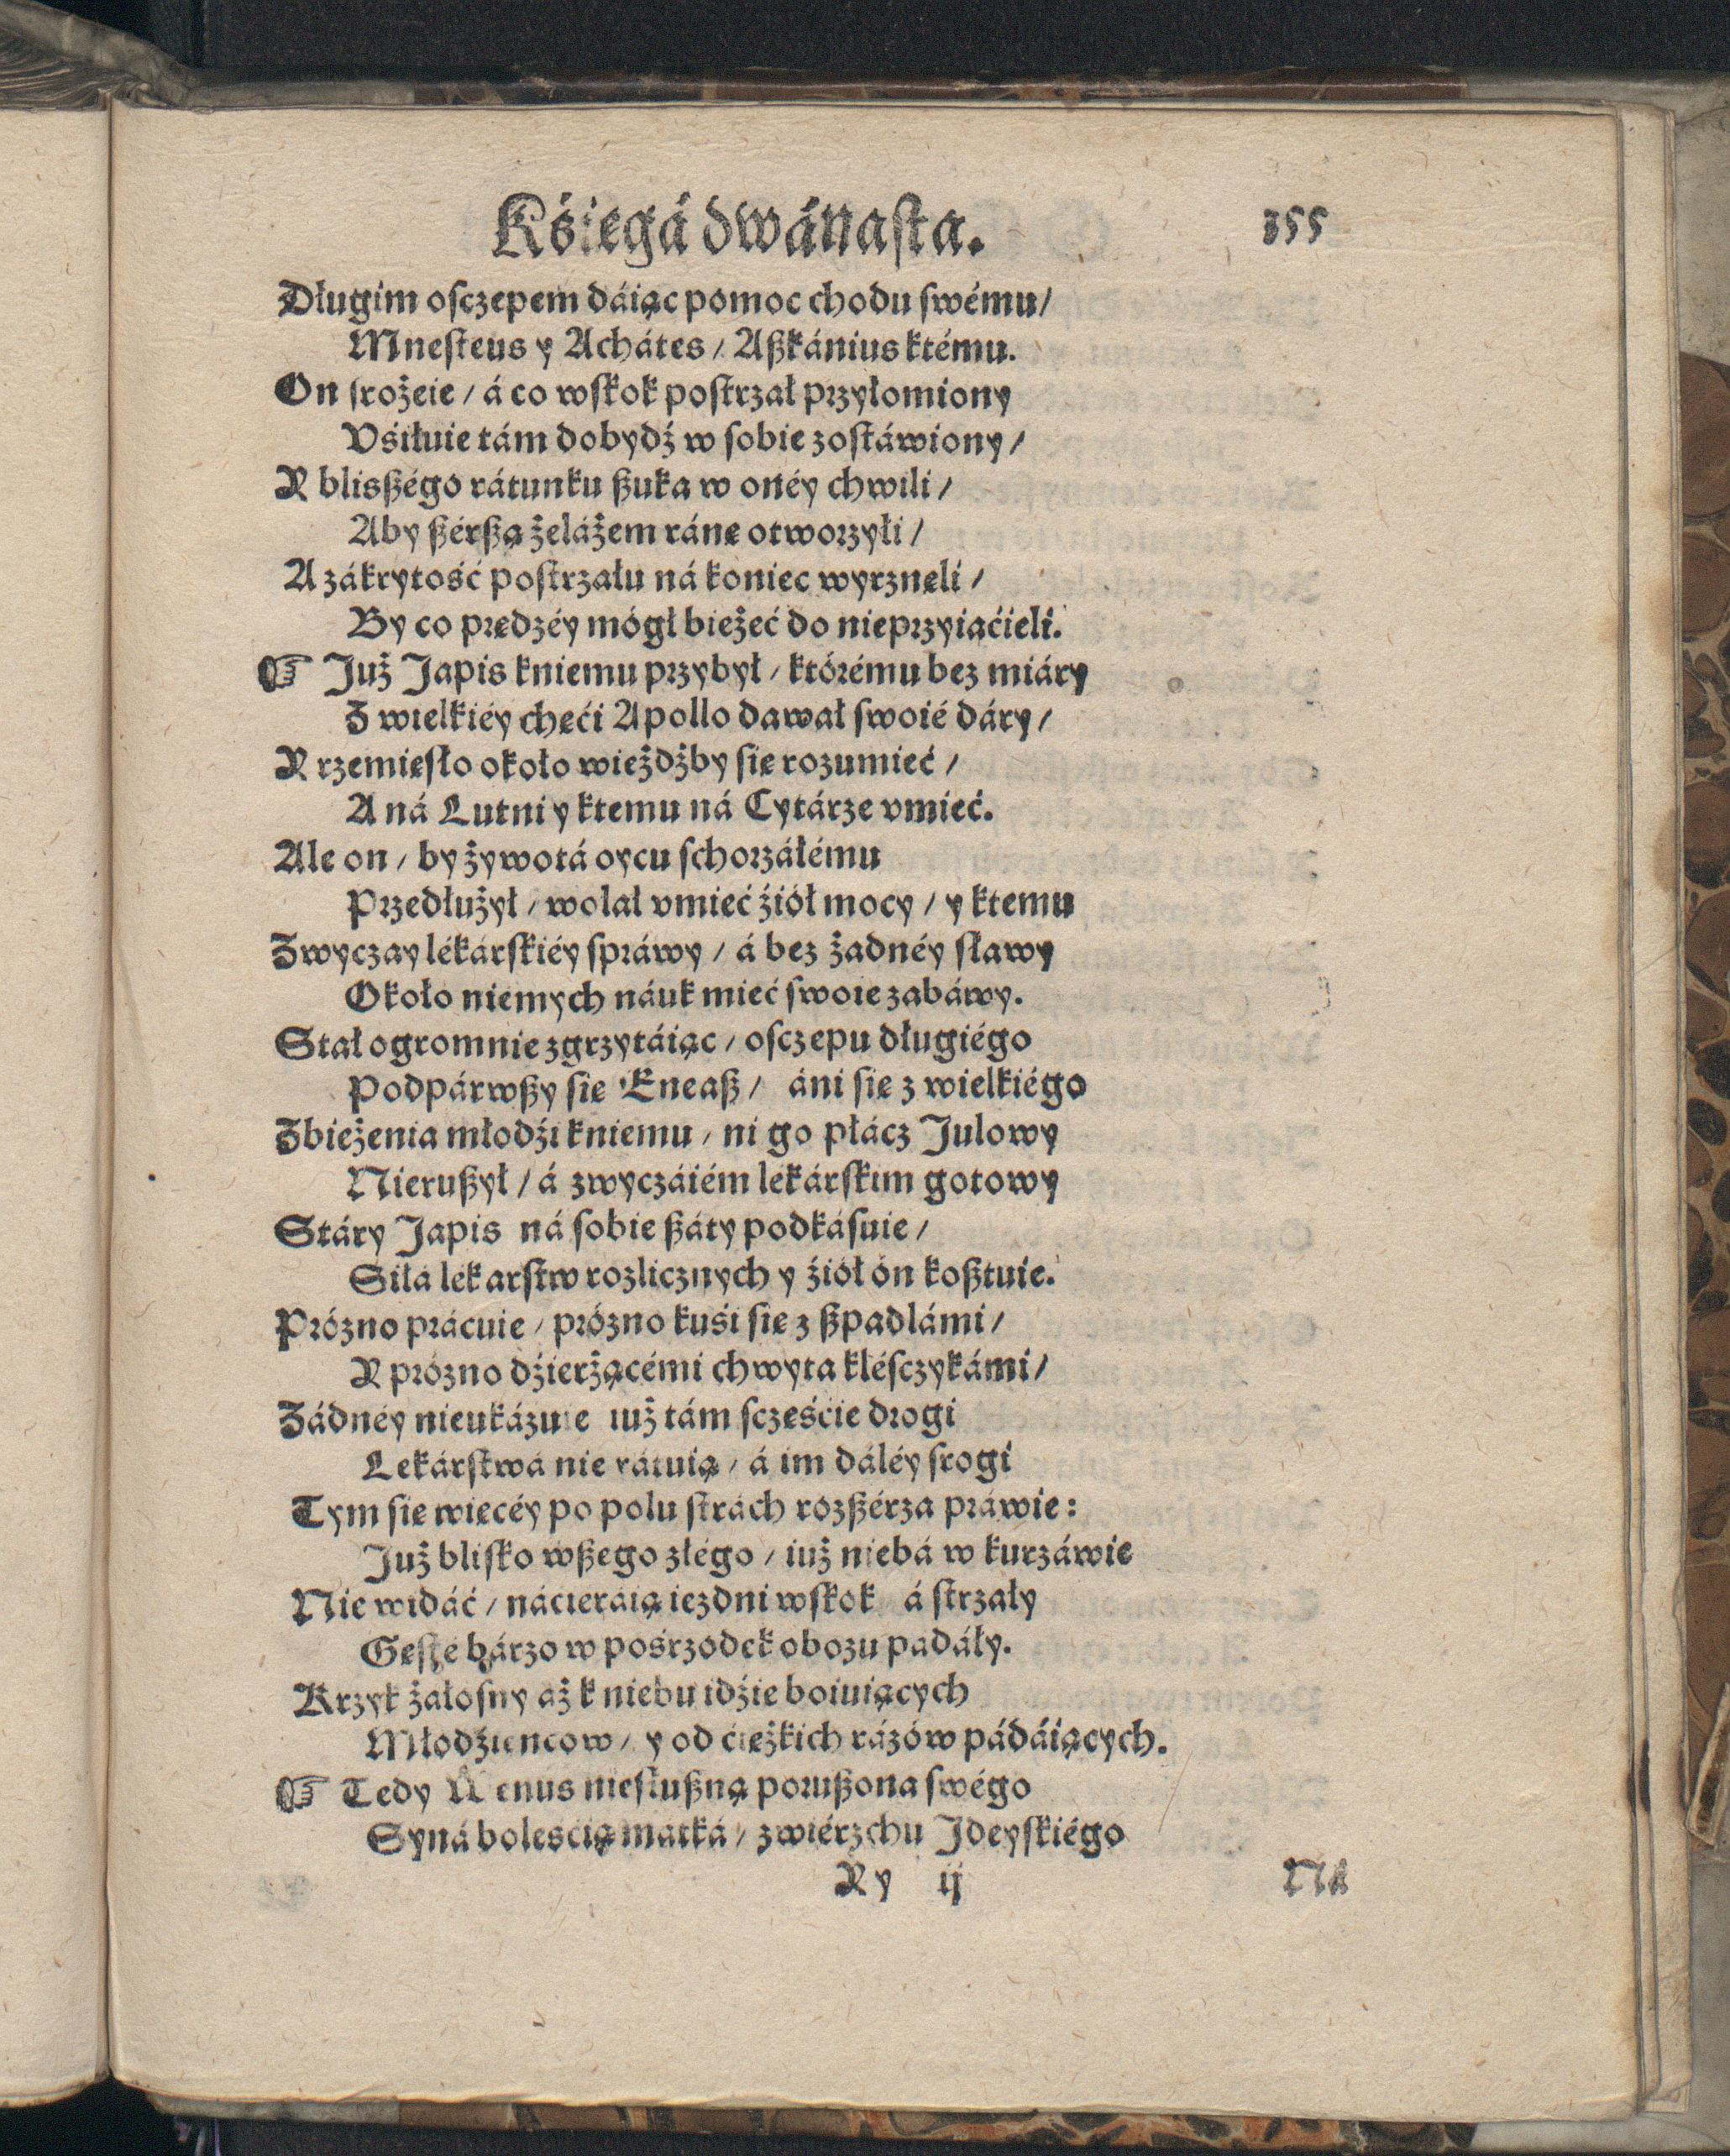 Kśięgá dwánasta. 355
Długim osczepem dáiąc pomoc chodu swému/
Mnesteus y Achátes / Aßkánius ktému.
On srożeie / á co wskok postrzał przyłomiony
Vśiłuie tám dobydź w sobie zostáwiony /
Y blisßégo rátunku ßuka w onéy chwili /
Aby ßérßą żelázem ránę otworzyłi /
A zákrytość postrzału ná koniec wyrznęli /
By co prędzéy mógł bieżeć do nieprzyiaćieli.
☞ Już Japis kniemu przybył / którému bez miáry
Z wielkiéy chęći Apollo dawał swoié dáry /
Y rzemięsło około wieżdżby się rozumieć /
A ná Lutni y ktemu ná Cytárze vmieć.
Ale on / by żywotá oycu schorzáłému
Przedłużył / wolał vmieć źiół mocy / y ktemu
Zwyczay lékárskiéy spráwy / á bez żadnéy sławy
Około niemych náuk mieć swoie zabáwy.
Stał ogromnie zgrzytáiąc / osczepu długiégo
Podpárwßy się Eneaß / áni się z wielkiégo
Zbieżenia młodźi kniemu / ni go płácz Julowy
Nierußył / á zwyczáiém lekárskim gotowy
Stáry Japis ná sobie ßáty podkásuie /
Siłá lékarstw rozlicznych y źiół ón koßtuie.
Prózno prácuie / prózno kuśi się z ßpadlámi /
Y prózno dźierżącémi chwyta klésczykámi /
Żádnéy nieukázuie iuż tám sczęście drogi
Lekárstwá nie rátuią / á im dáléy srogi
Tym się więcéy po polu strách rozßérza práwie:
Już blisko wßego złégo / iuż niebá w kurzáwie
Nie widáć / náćieráią iezdni wskok á strzały
Gęste bárzo w pośrzodek obozu padáły.
Krzyk żałosny aż k niebu idźie boiuiących
Młodźieńcow / y od ćięzkich rázów pádáiących.
☞ Tedy Wenus niesłußną porußona swégo
Syná boleśćią matká / zwiérzchu Jdeyskiégo
Yy ij Ná